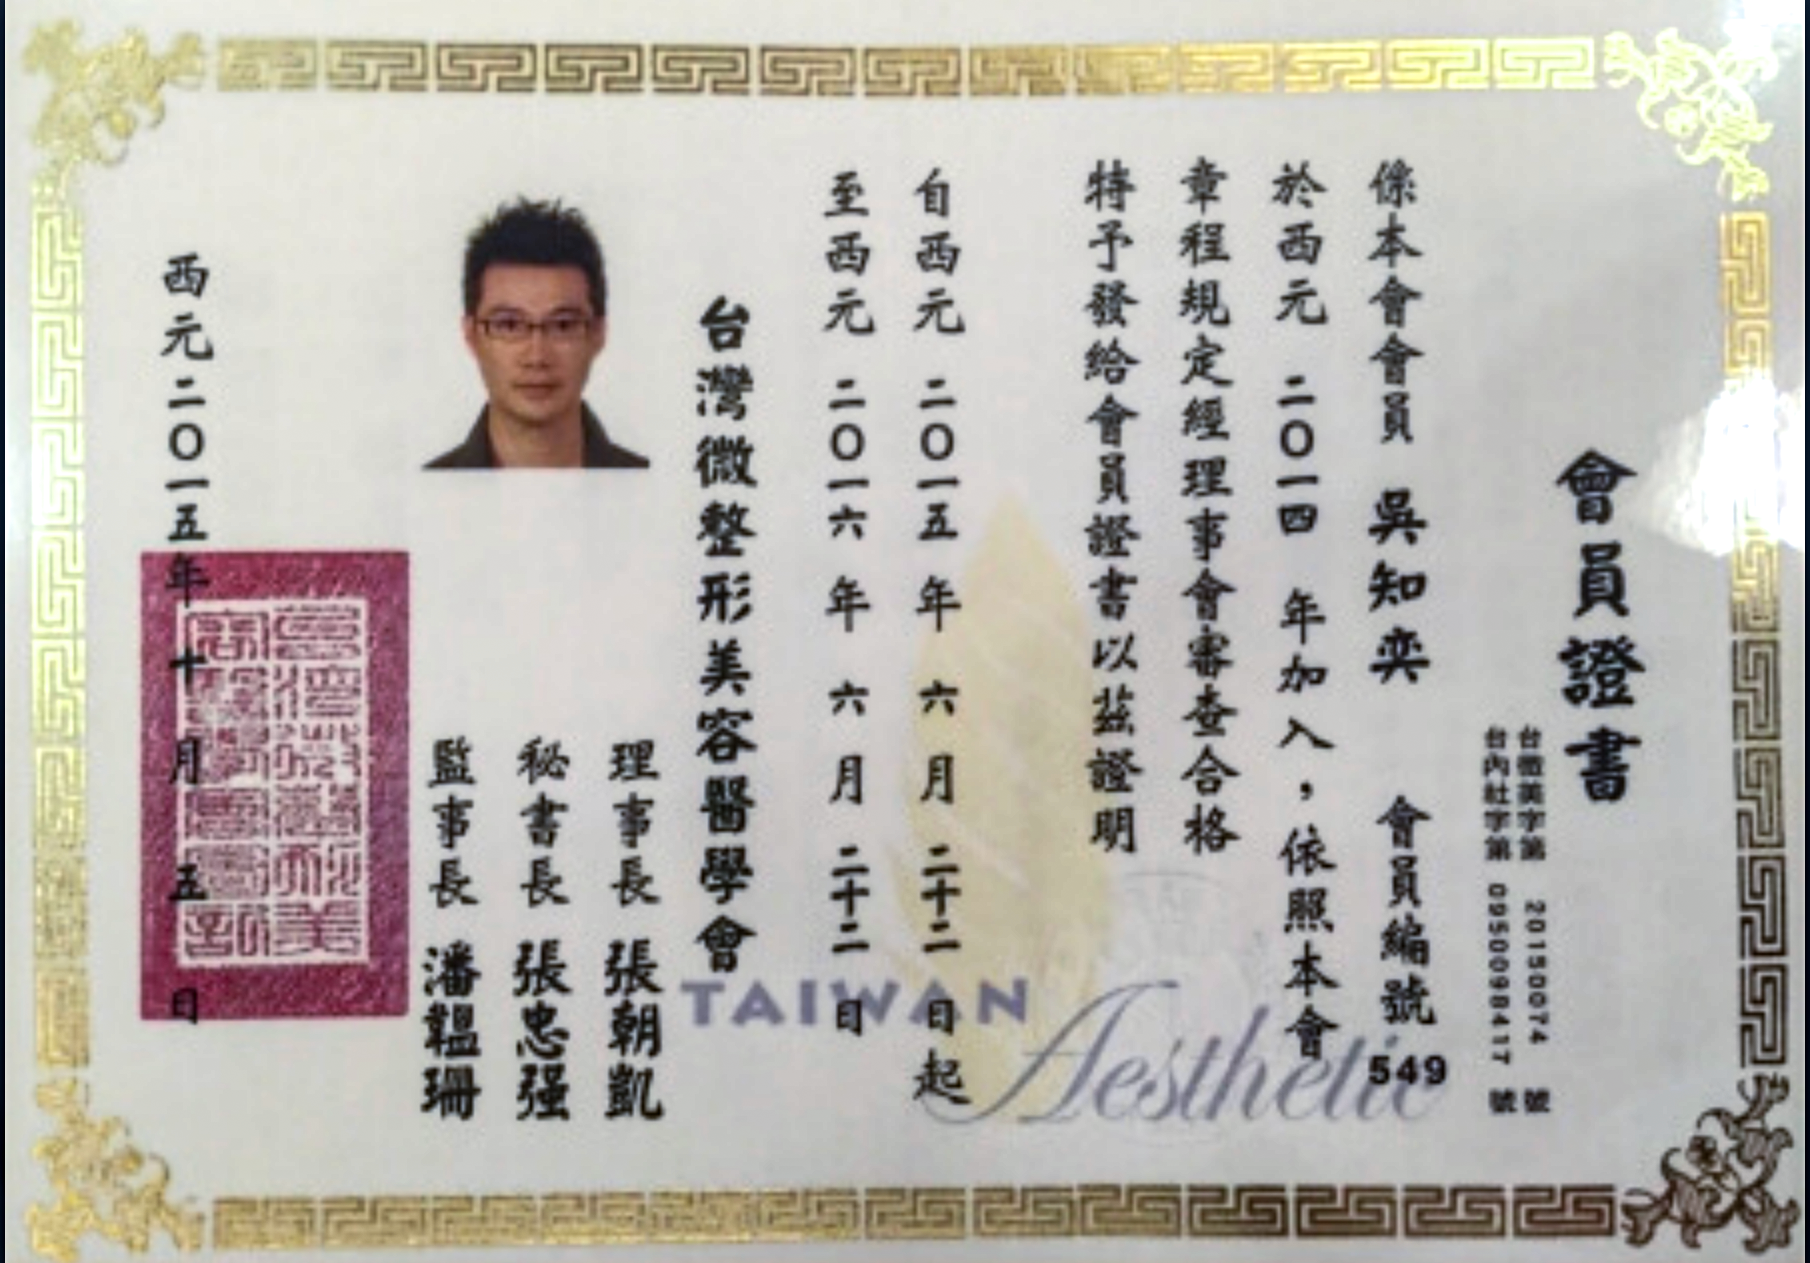 會員證書
台微美字第 20150074 號
台內社字第 0950098417 號
係本會會員 吳知奕 會員編號 549
於西元 二〇一四 年加入，依照本會
章程規定經理事會審查合格
特予發給會員證書以茲證明
自西元 二〇一五 年 六 月 二十二 日起
至西元 二〇一六 年 六 月 二十二 日
台灣微整形美容醫學會
理事長 張朝凱
秘書長 張忠強
監事長 潘韞珊
西元二〇一五年十月五日
TAIWAN
Aesthetic